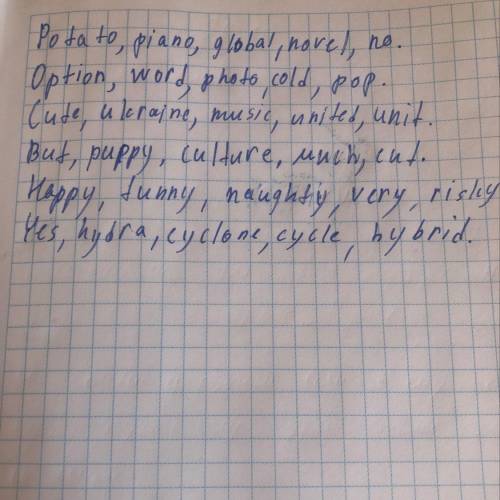 Potato, piano, global, novel, no.
Option, word, photo, cold, pop.
Cute, ukraine, music, united, unit.
But, puppy, culture, much, cut.
Happy, funny, naughty, very, risky
Yes, hydra, cyclone, cycle, hybrid.